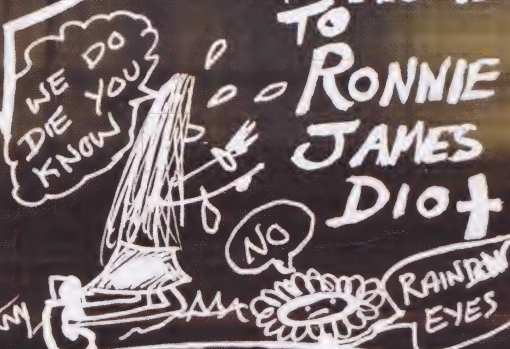 WE DO
DIE YOU
KNOW
TO
RONNIE
JAMES
DIO
NO
RAINBOW
EYES